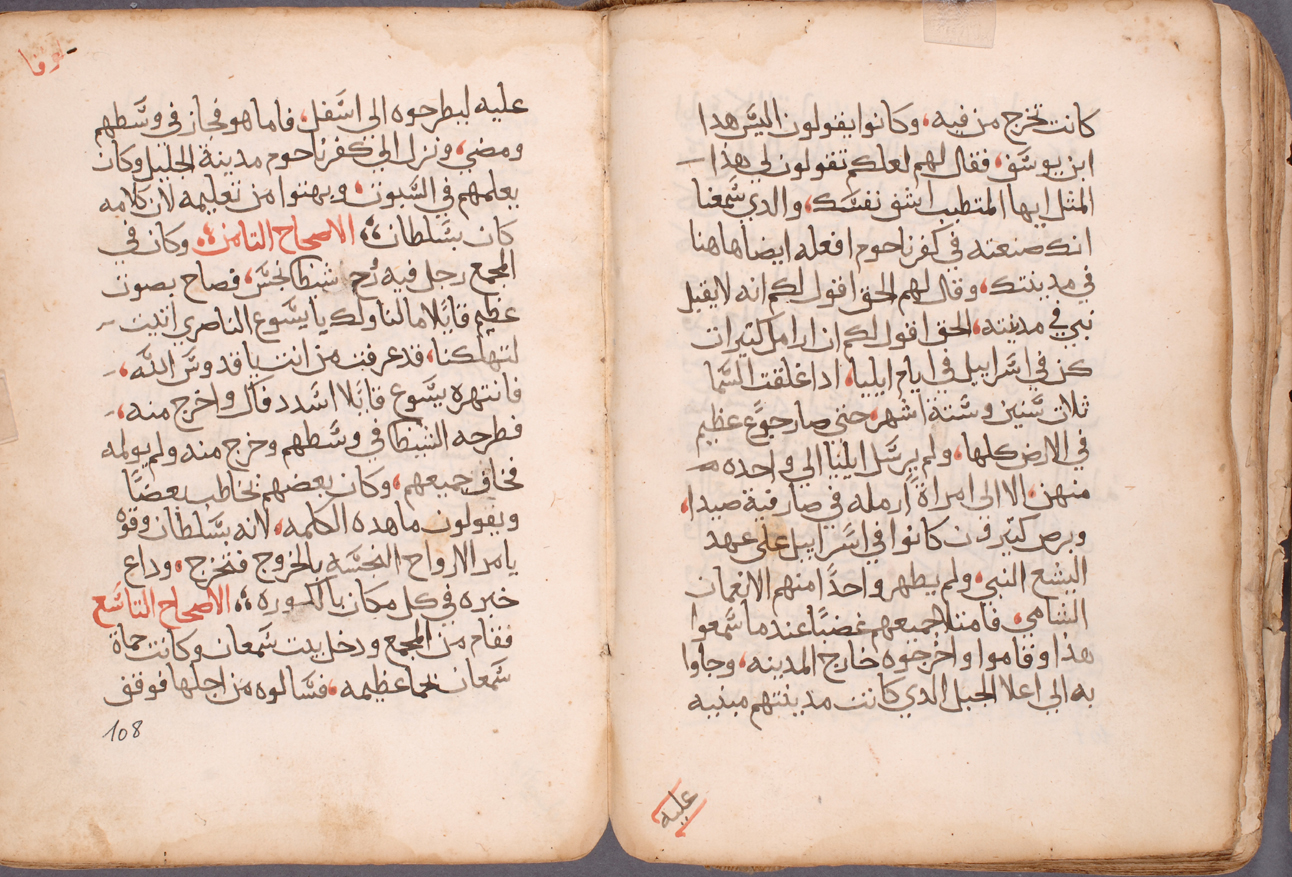 كانت تخرج من فيه، وكانوا يقولون اليس هدا
ابن يوسف، فقال لهم لعلكم تقولون لي هذا
المثل ايها المتطبب اشفي نفسك، والدي سمعنا
انك صنعته في كفرناحوم افعله ايضا هاهنا
في مدينتك، وقال لهم الحق اقول لكم انه لا يقبل
نبي في مدينته، الحق اقول لكم ان ارامل كتيرات
كن في اسراييل في ايام ايليا، ادا غلقت السما
ثلات سنين وستة اشهر، حتى صار جوع عظيم
في الارض كلها، ولم يرسل ايليا الى واحده
منهن، الا الى امراة ارمله في صارفية صيدا،
وبرص كتيرون كانوا في اسراييل على عهد
اليشع النبي، ولم يطهر واحدًا منهم الا نعمان
الشامي، فامتلا جميعهم غضبًا عندما سمعوا
هذا وقاموا واخرجوه خارج المدينه، وجاوا
به الى اعلا الجبل الدي كانت مدينتهم مبنيه
عليه
لوقا
عليه ليطرحوه الى اسفل، فاما هو فجاز في وسطهم
ومضي، ونزل الي كفرناحوم مدينة الجليل وكان
يعلمهم في السبوت، وبهتوا من تعليمه لان كلامه
كان بسلطان، الاصحاح التامن، وكان في
المجمع رجل فيه روح شيطان نجس، فصاح بصوت
عظيم قايلا ما لنا ولك يا يسوع الناصري اتيت
لتهلكنا، قد عرفت من انت يا قدوس الله،
فانتهره يسوع قايلا اسدد فاك واخرج منه،
فطرحه الشيطان في وسطهم وخرج منه ولم يولمه
فخاف جميعهم، وكان بعضهم يخاطب بعضًا
ويقولون ما هده الكلمه، لانه بسلطان وقوه
يامر الارواح النجسه بالخروج فتخرج، وداع
خبره في كل مكان بالكوره، الاصحاح التاسع
فقام من المجمع ودخل بيت سمعان وكانت حماة
سمعان بحما عظيمه، فسالوه من اجلها فوقف
108